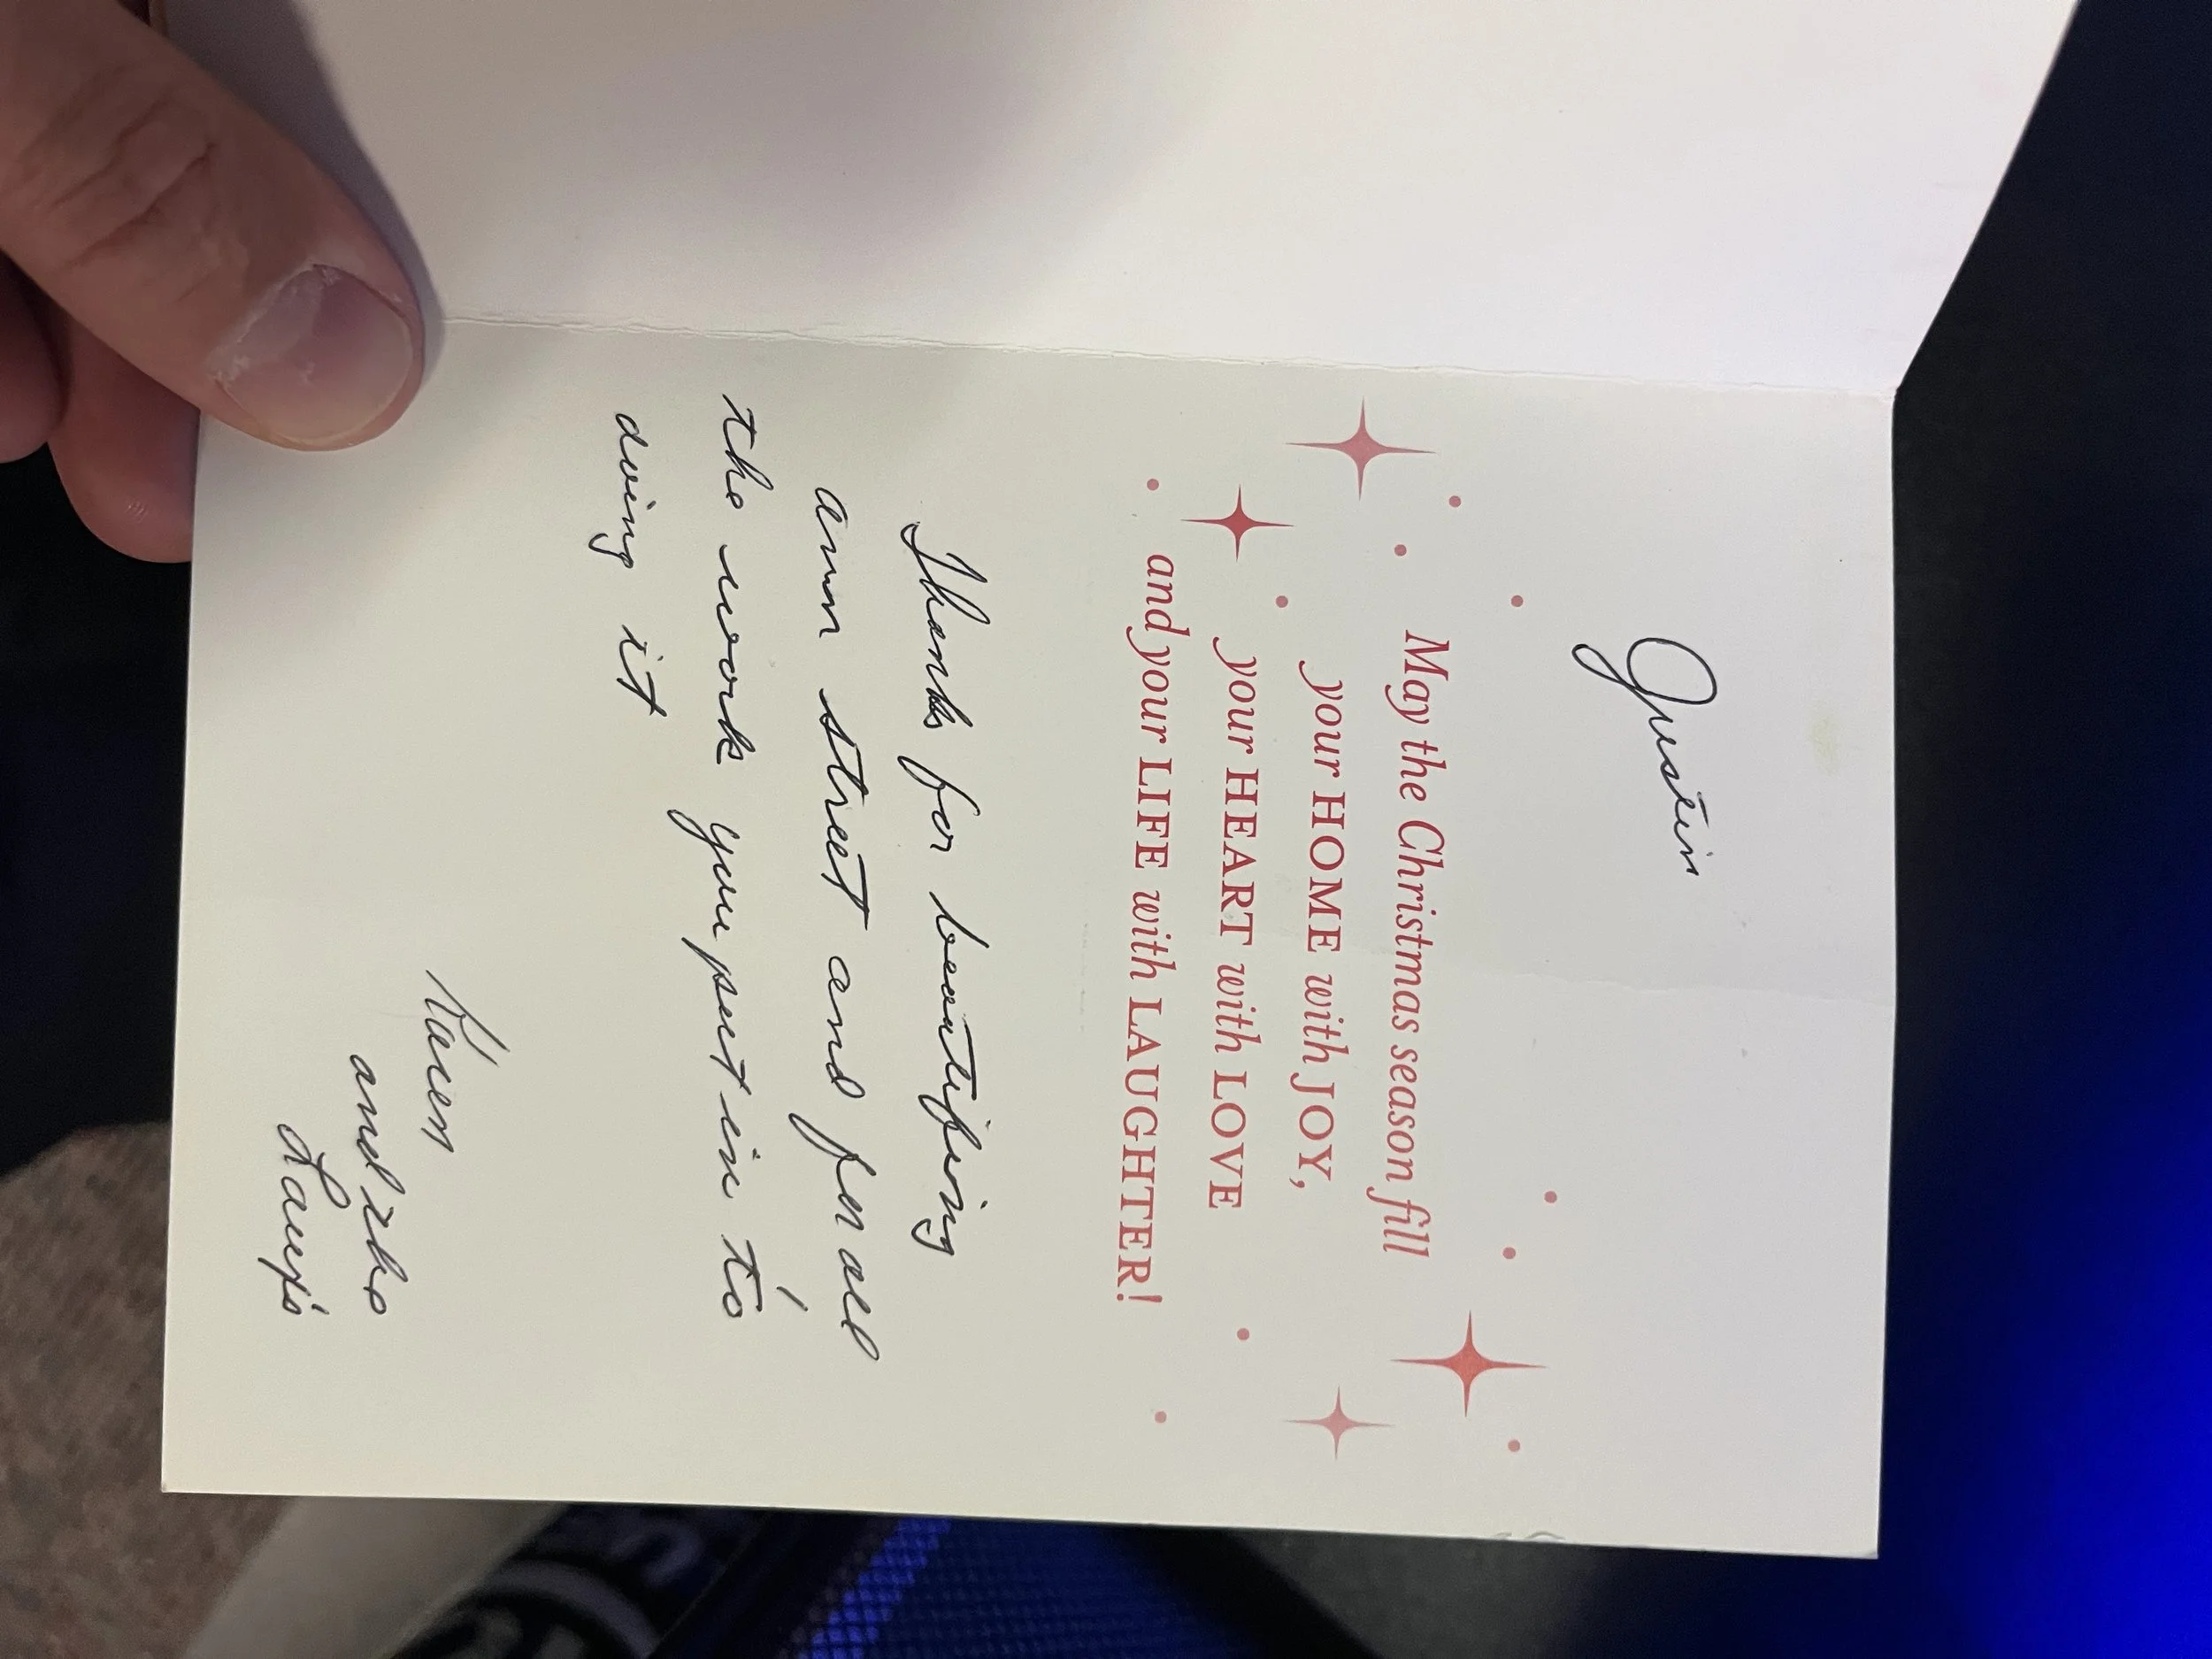 Justin
May the Christmas season fill
your HOME with JOY,
your HEART with LOVE
and your LIFE with LAUGHTER!
Thanks for beautifing
our street and for all
the work you put in to
doing it
Karen
and the